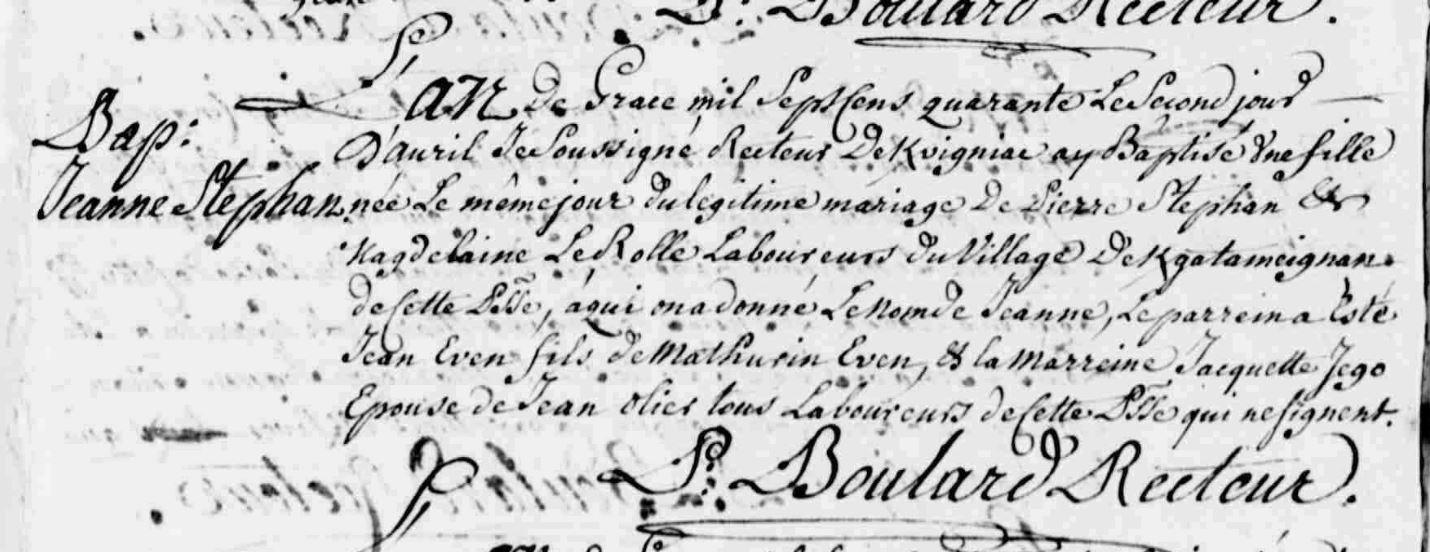 P. Boulard Recteur.
L'an de Grace mil Sept Cens quarante Le Second jour
Bap: D'auril Je Soussigné Recteur De Kvigniac ay Baptisé Vne fille
Jeanne Stephan née Le même jour du legitime mariage De Pierre Stephan &
Magdelaine Le Rolle Laboureurs du Village De Kgatameignan
de Cette Psse, a qui on a donné Le nom de Jeanne, Le parrein a Esté
Jean Even fils de Mathurin Even, & la Marreine Jacquette Jego
Epouse de Jean Olier tous Laboureurs de Cette Psse qui ne signent.
P. Boulard Recteur.